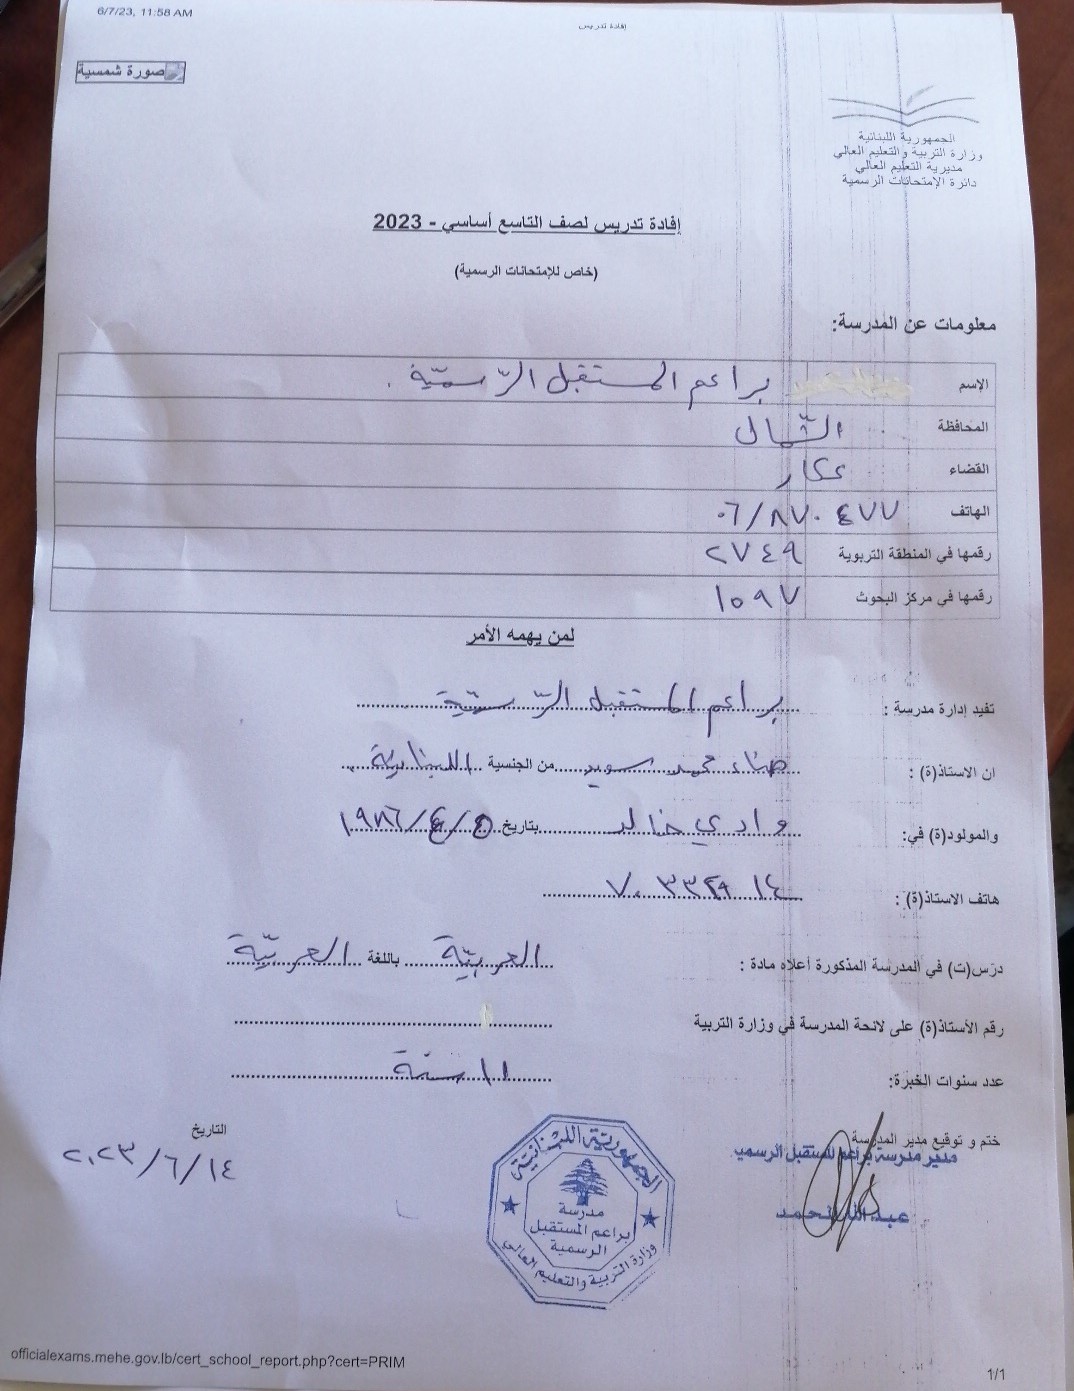 6/7/23, 11:58 AM
إفادة تدريس
صورة شمسية
الجمهورية اللبنانية
وزارة التربية والتعليم العالي
مديرية التعليم العالي
دائرة الإمتحانات الرسمية
إفادة تدريس لصف التاسع أساسي - 2023
(خاص للإمتحانات الرسمية)
معلومات عن المدرسة:
الإسم براعم المستقبل الرّسميّة.
المحافظة الشّمال
القضاء عكار
الهاتف ٠٦/٨٧٠٤٧٧
رقمها في المنطقة التربوية ٢٧٤٩
رقمها في مركز البحوث ١٥٩٧
لمن يهمه الأمر
تفيد إدارة مدرسة : براعم المستقبل الرّسميّة
ان الاستاذ(ة) : هناء محمد سويد من الجنسية اللبنانية.
والمولود(ة) في: وادي خالد بتاريخ ٥/٤/١٩٨٦
هاتف الاستاذ(ة) :
درّس(ت) في المدرسة المذكورة أعلاه مادة : العربيّة باللغة العربيّة
رقم الأستاذ(ة) على لائحة المدرسة في وزارة التربية
عدد سنوات الخبرة: ١١ سنة
ختم و توقيع مدير المدرسة
التاريخ
٢٠٢٣/٦/١٤
مدير مدرسة براعم المستقبل الرسمية
عبدالله الحمد
الجمهورية اللبنانية
مدرسة
براعم المستقبل
الرسمية
وزارة التربية والتعليم العالي
officialexams.mehe.gov.lb/cert_school_report.php?cert=PRIM
1/1